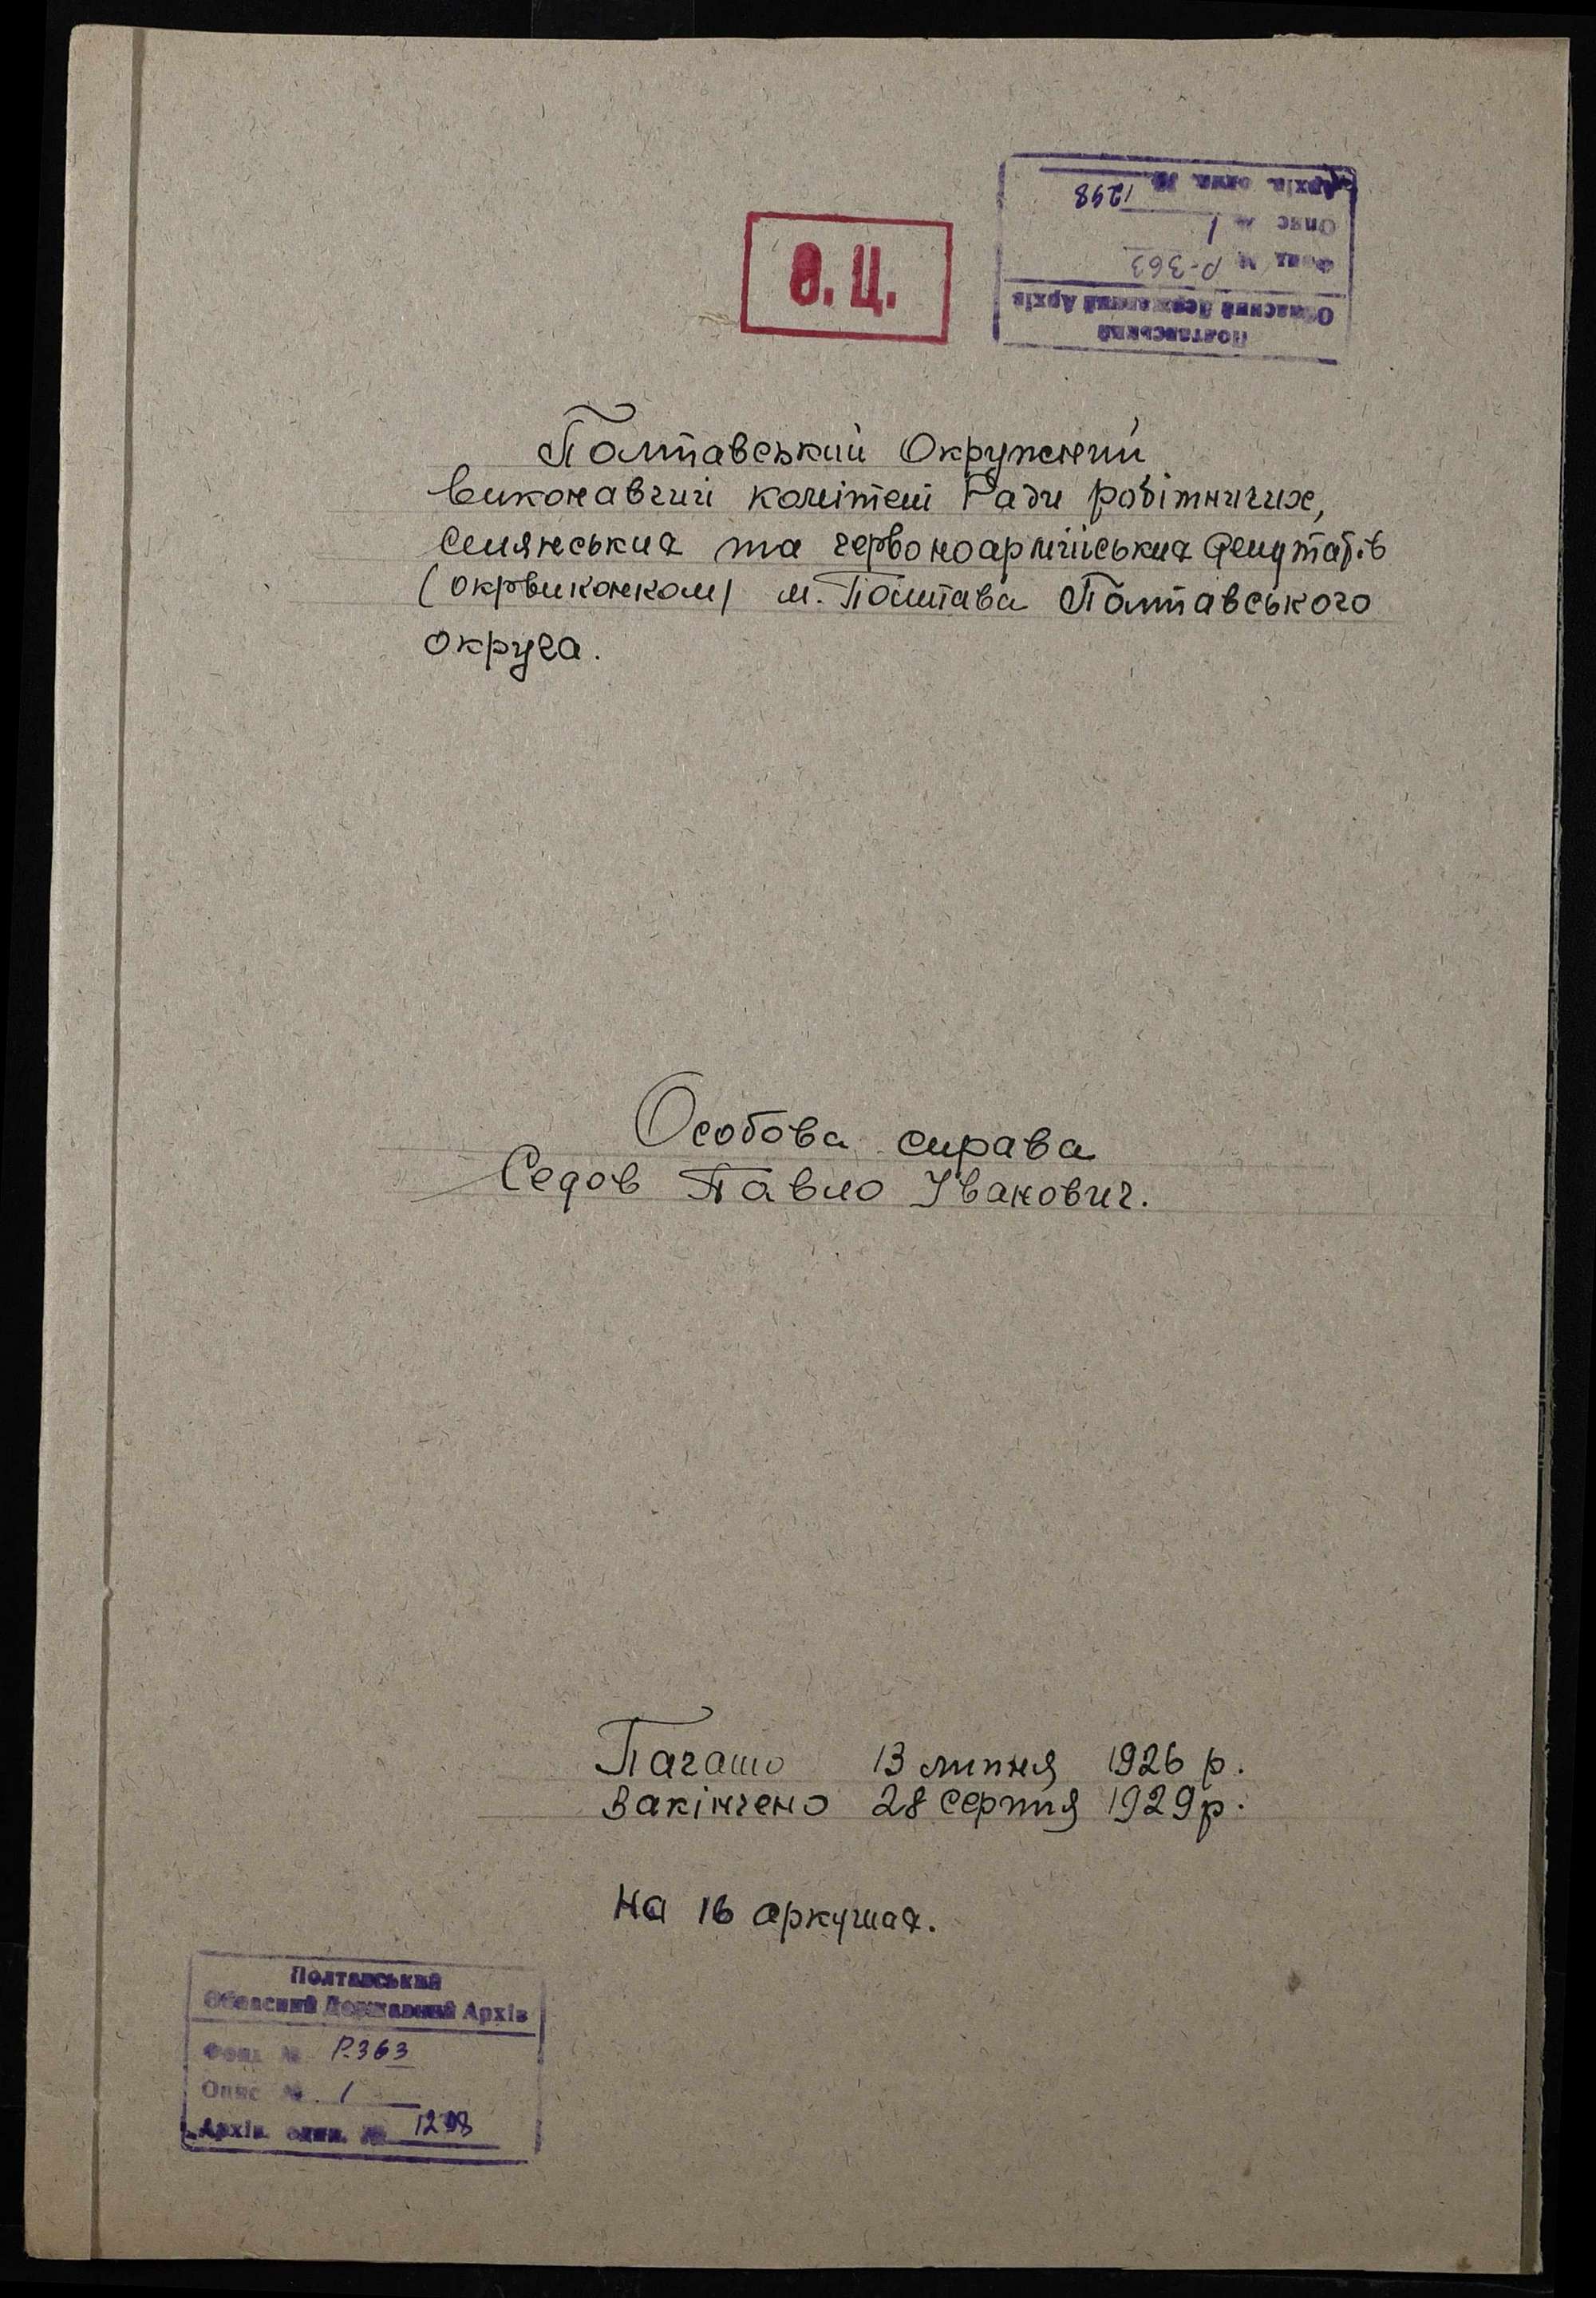 О.Ц.
Полтавський
Обласний Державний Архів
Фонд № Р-363
Опис № 1
Архів. один. № 1298
Полтавський Окружний
виконавчий комітет Ради робітничих,
селянських та червоноармійських депутатів
(окрвиконком) м. Полтава Полтавського
округа.
Особова справа
Седов Павло Іванович.
Почато 13 липня 1926 р.
Закінчено 28 серпня 1929 р.
На 16 аркушах.
Полтавський
Обласний Державний Архів
Фонд № Р-363
Опис № 1
Архів. один. № 1298